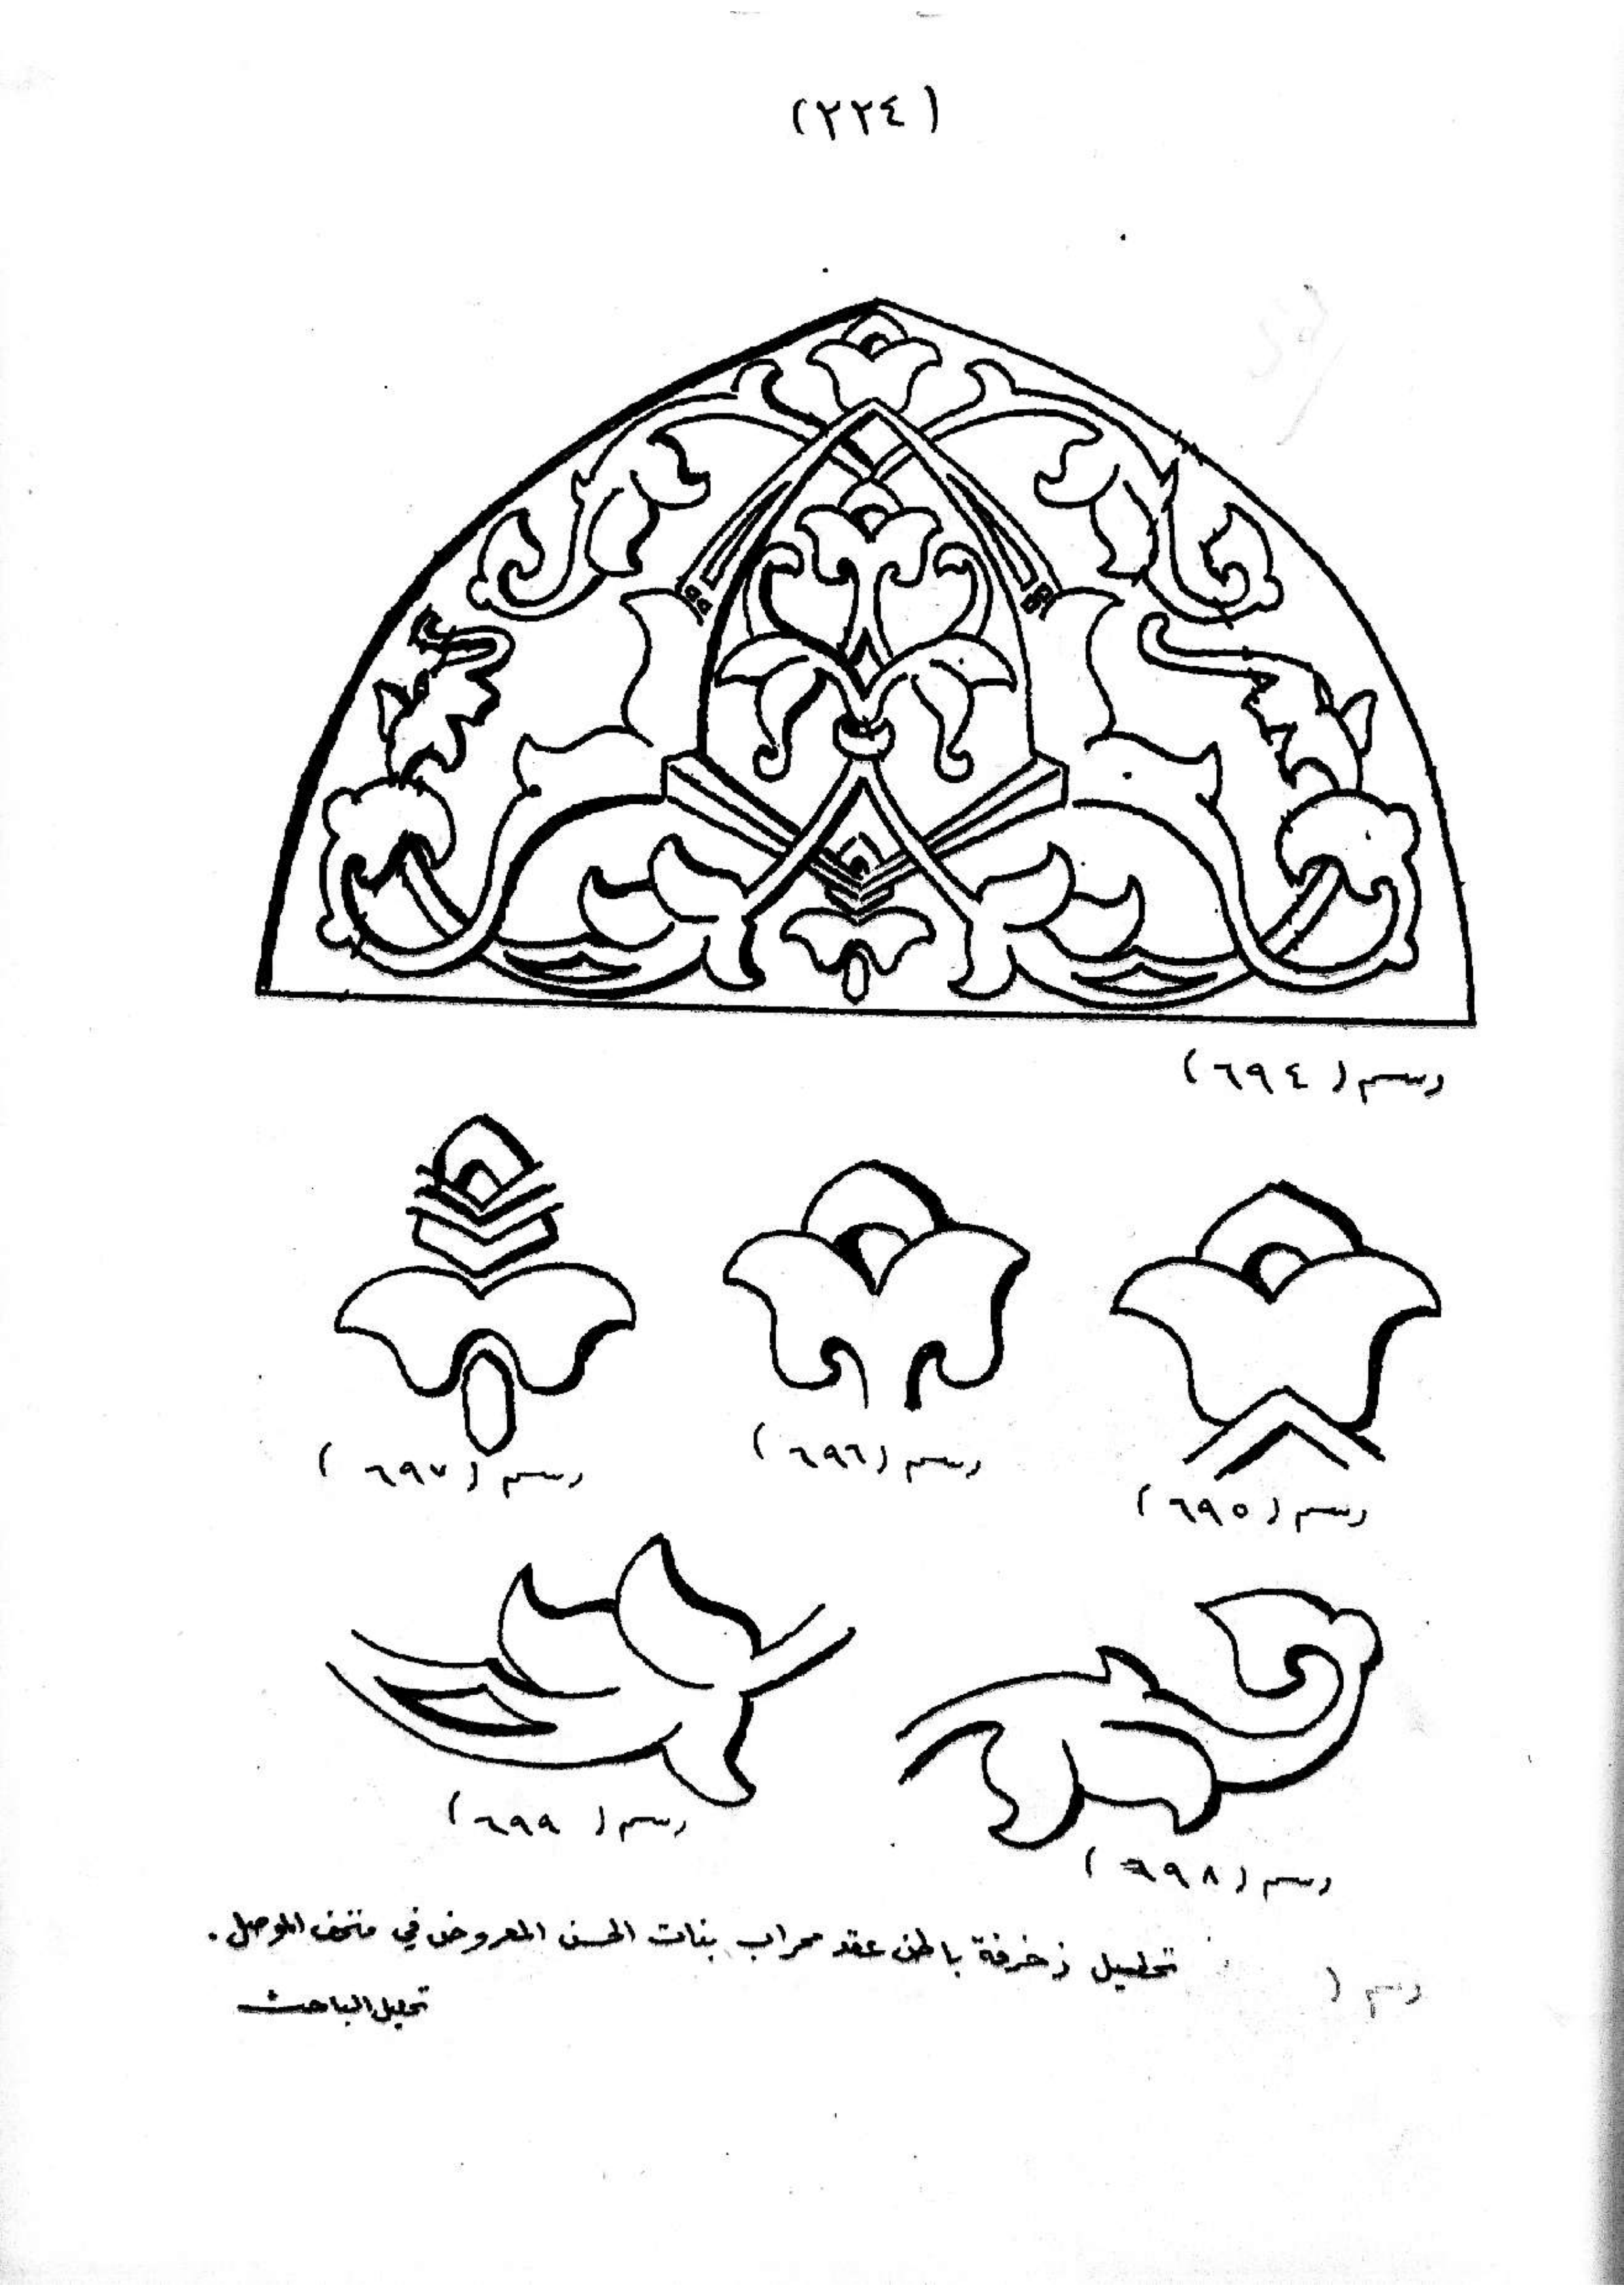 (٢٢٤)
رسم (٦٩٤)
رسم (٦٩٥)
رسم (٦٩٦)
رسم (٦٩٧)
رسم (٦٩٨)
رسم (٦٩٩)
رسم ( تحليل زخرفة باطن عقد محراب بنات الحسن المعروض في متحف الموصل.
تحليل الباحث